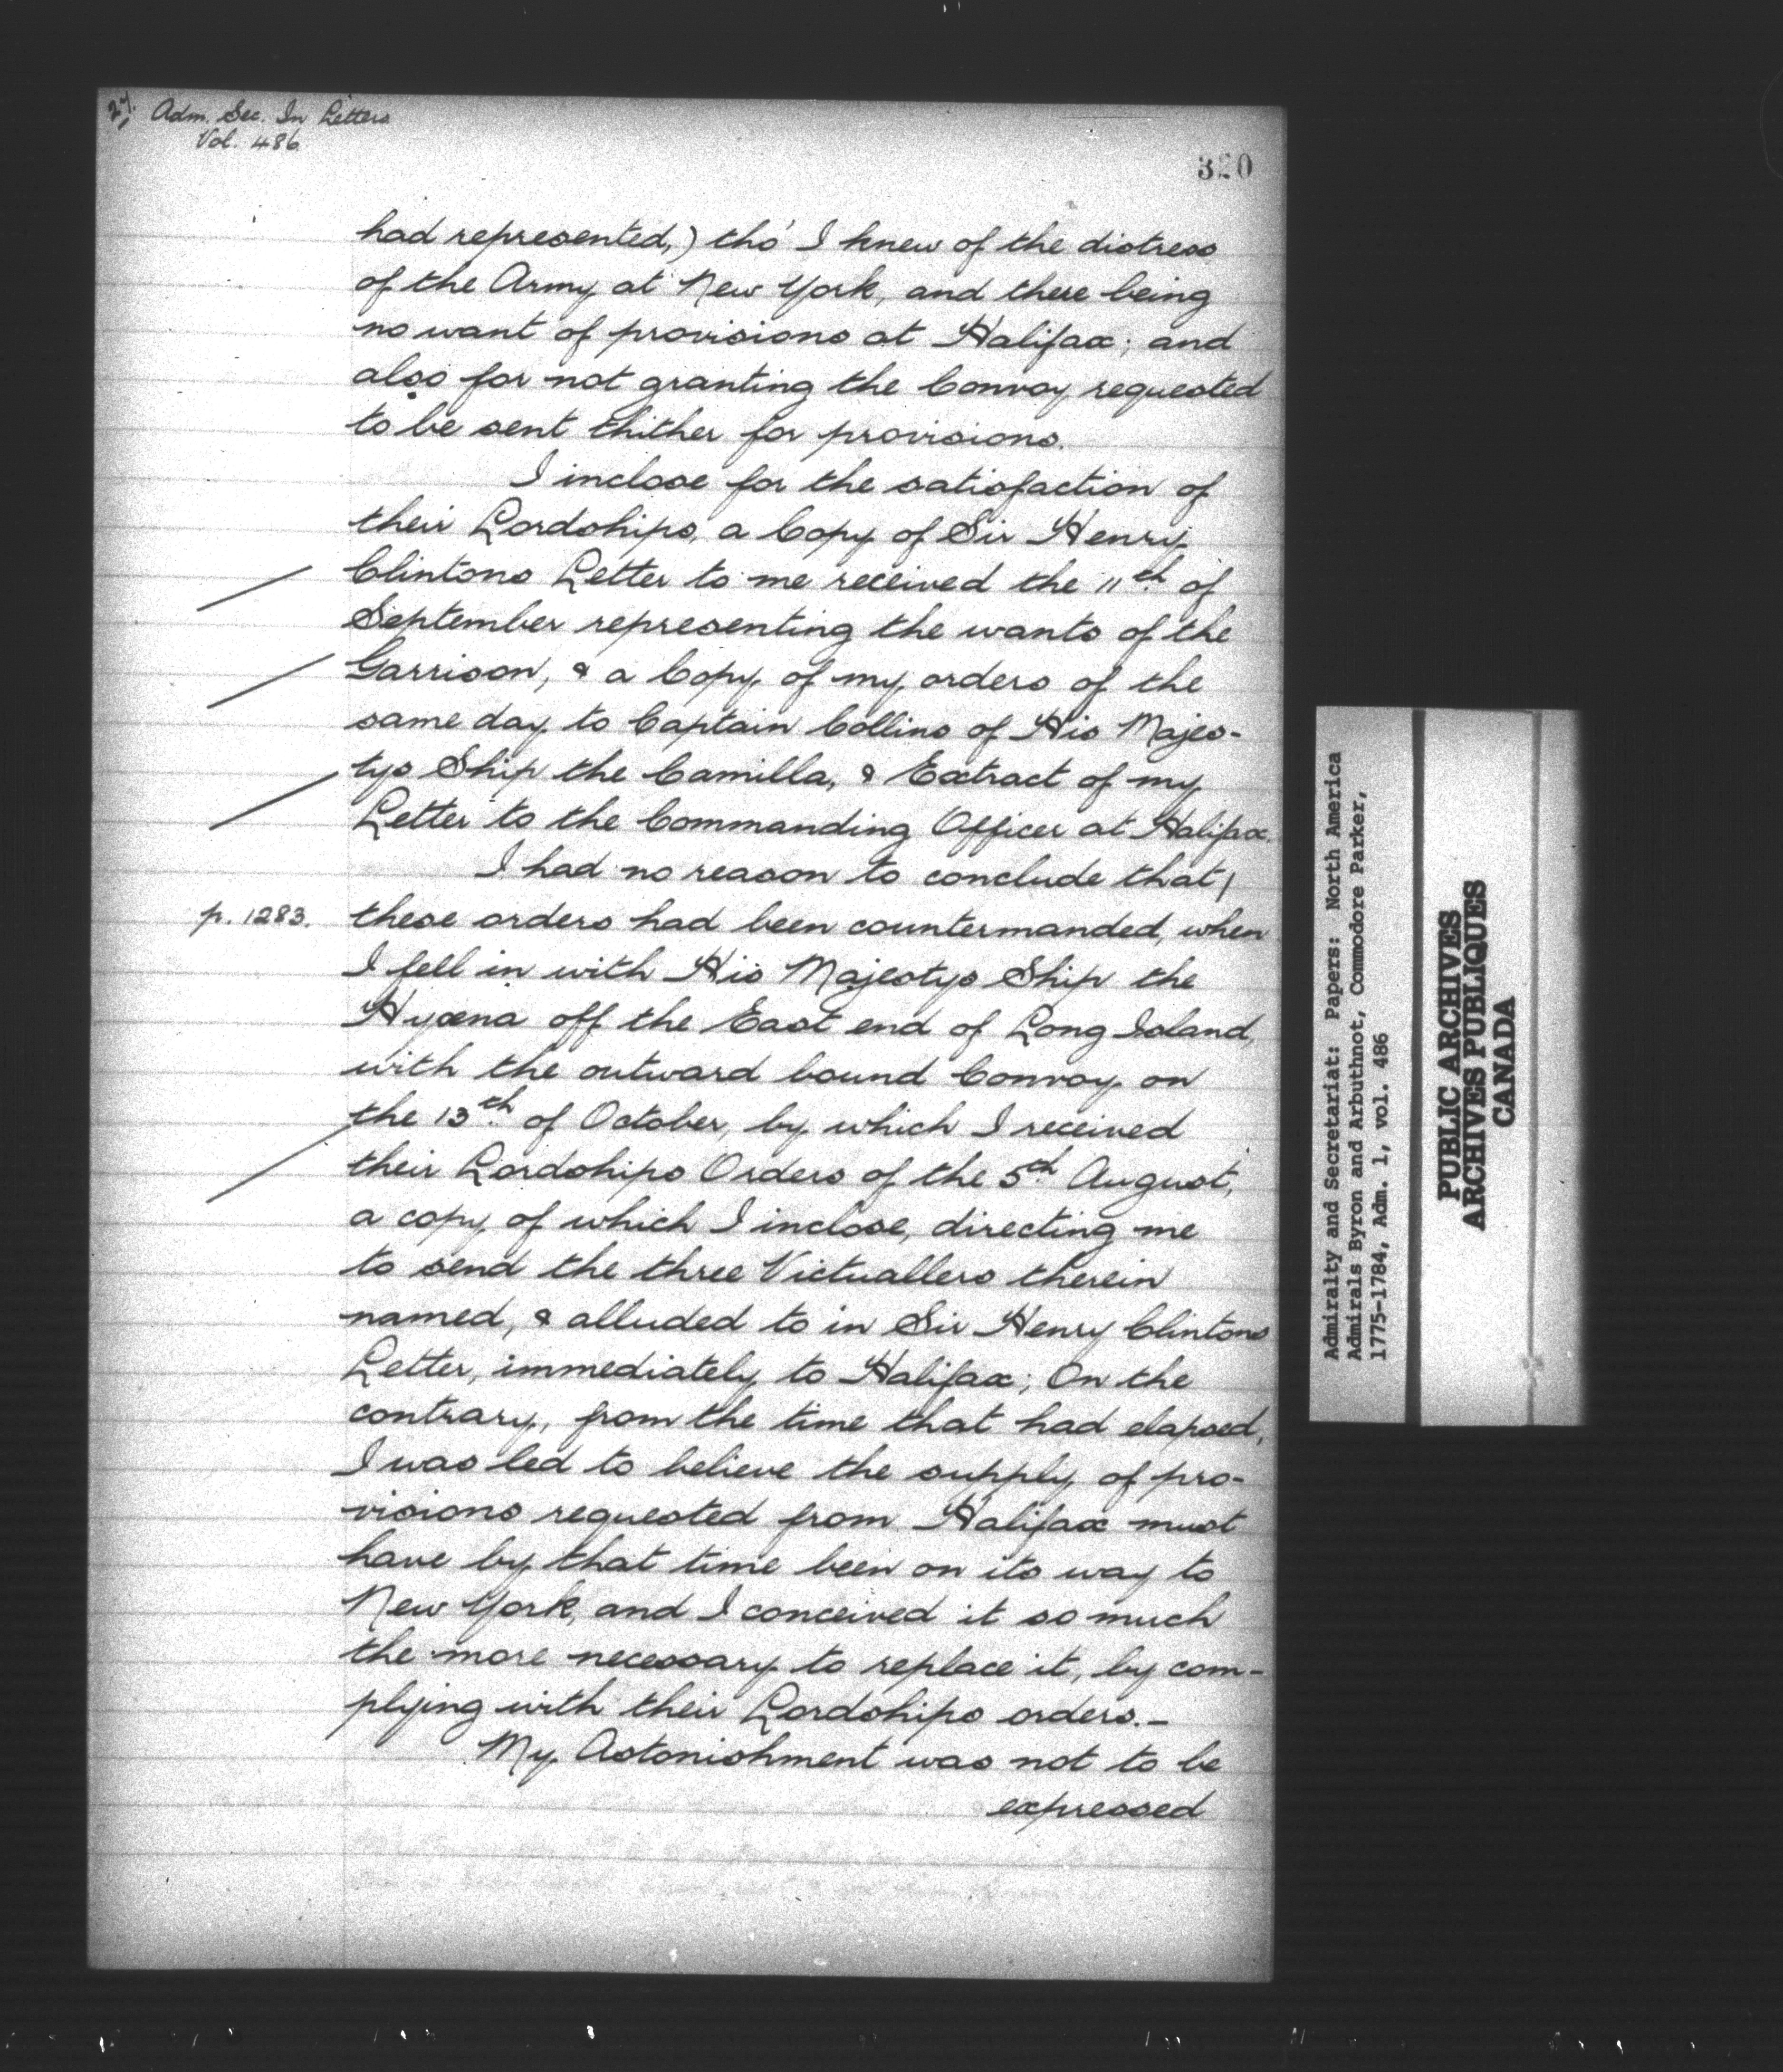 27. Adm. Sec. In Letters
Vol. 486
320
had represented,) tho' I knew of the distress
of the Army at New York, and there being
no want of provisions at Halifax; and
also for not granting the Convoy requested
to be sent thither for provisions.
I inclose for the satisfaction of
their Lordships, a Copy of Sir Henry
Clintons Letter to me received the 11th of
September representing the wants of the
Garrison, & a Copy of my orders of the
same day to Captain Collins of His Majes-
tys Ship the Camilla, & Extract of my
Letter to the Commanding Officer at Halifax.
I had no reason to conclude that
p. 1283. these orders had been countermanded, when
I fell in with His Majestys Ship the
Hyæna off the East end of Long Island,
with the outward bound Convoy on
the 13th of October, by which I received
their Lordships Orders of the 5th August,
a copy of which I inclose, directing me
to send the three Victuallers therein
named, & alluded to in Sir Henry Clintons
Letter, immediately to Halifax; On the
contrary, from the time that had elapsed,
I was led to believe the supply of pro-
visions requested from Halifax must
have by that time been on its way to
New York, and I conceived it so much
the more necessary to replace it, by com-
plying with their Lordships orders.-
My Astonishment was not to be
expressed
Admiralty and Secretariat: Papers: North America
Admirals Byron and Arbuthnot, Commodore Parker,
1775-1784, Adm. 1, vol. 486
PUBLIC ARCHIVES
ARCHIVES PUBLIQUES
CANADA